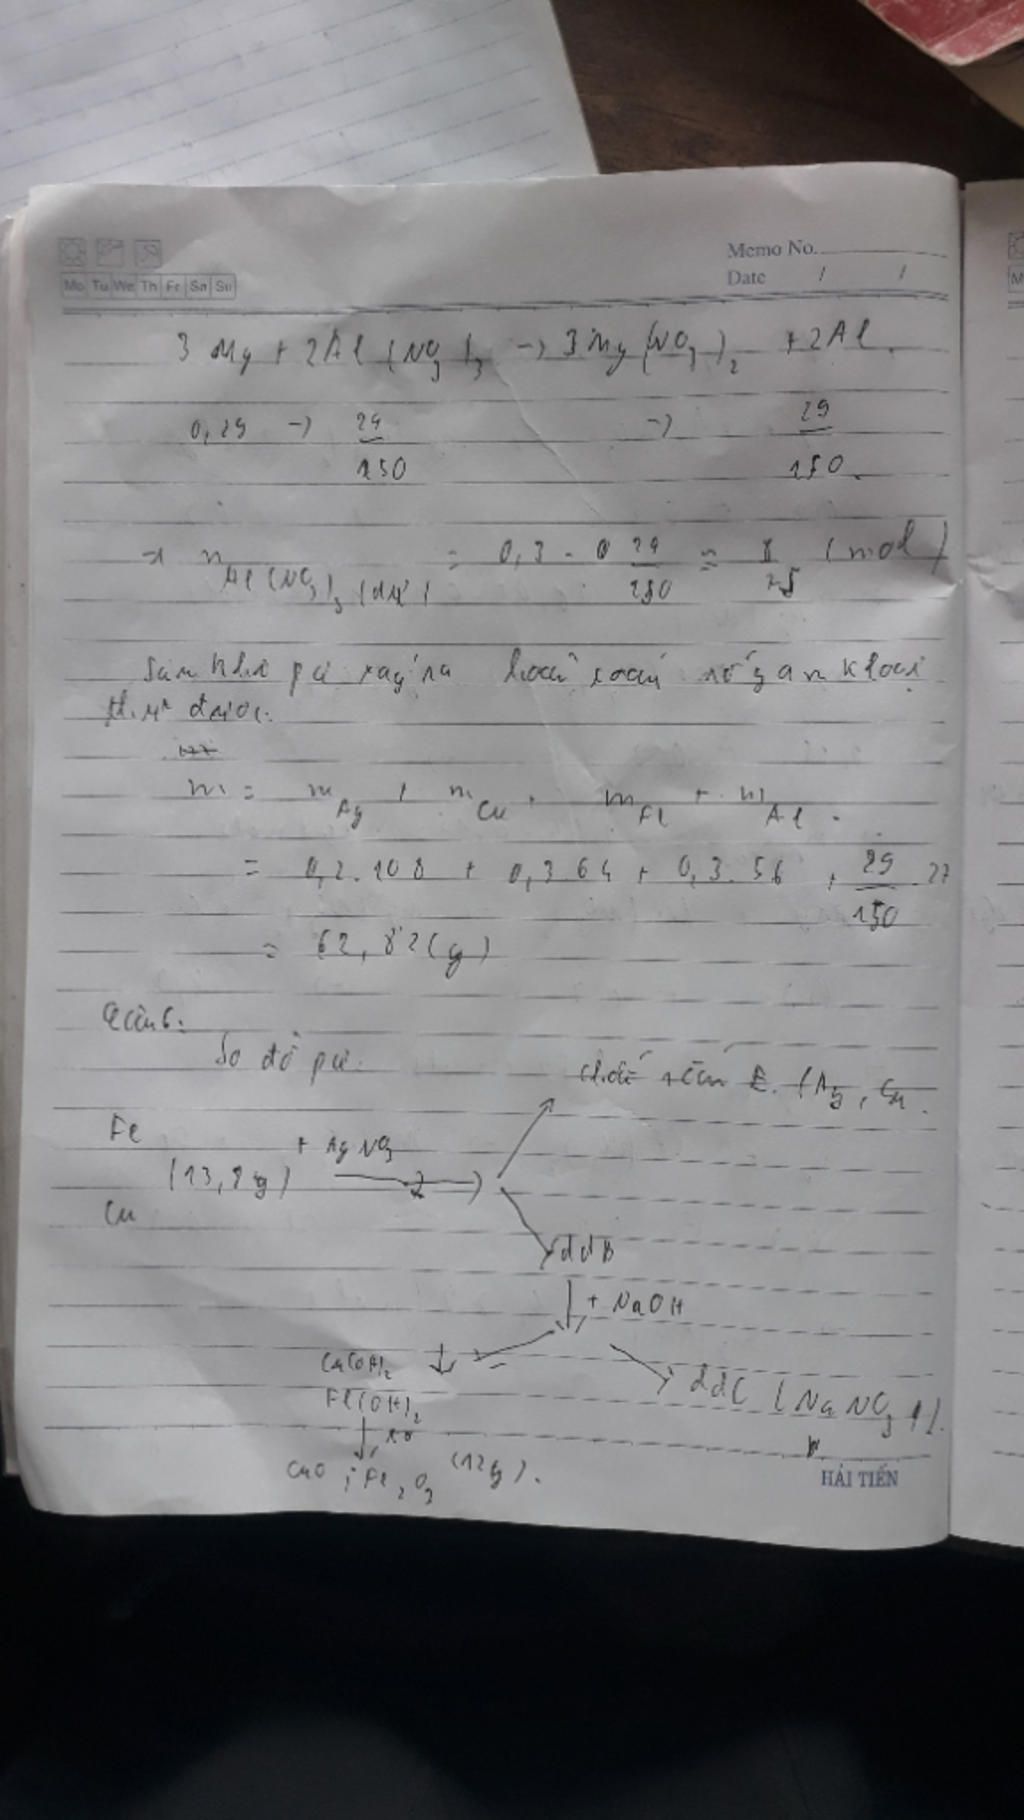 Memo No.
Mo Tu We Th Fr Sa Su
Date / /
3 Mg + 2Al (NO3)3 → 3Mg (NO3)2 + 2Al.
0,29 → 29/150 → 29/150.
→ n Al(NO3)3 (dư) = 0,3 - 29/150 = 8/75 (mol)
Sau khi pư xảy ra hoàn toàn số gam kloại
thu được.
m = m Ag + m Cu + m Fe + m Al.
= 0,2.108 + 0,3 64 + 0,3.56 + 29/150 . 27
= 62,82 (g)
Câu 6:
Sơ đồ pư.
chất rắn E. (Ag, Cu.
Fe
(13,8 g) + AgNO3 →
Cu
ddB
+ NaOH
Cu(OH)2 ↓
ddC (NaNO3
Fe(OH)2
CuO ; Fe2O3 (12g).
HẢI TIẾN